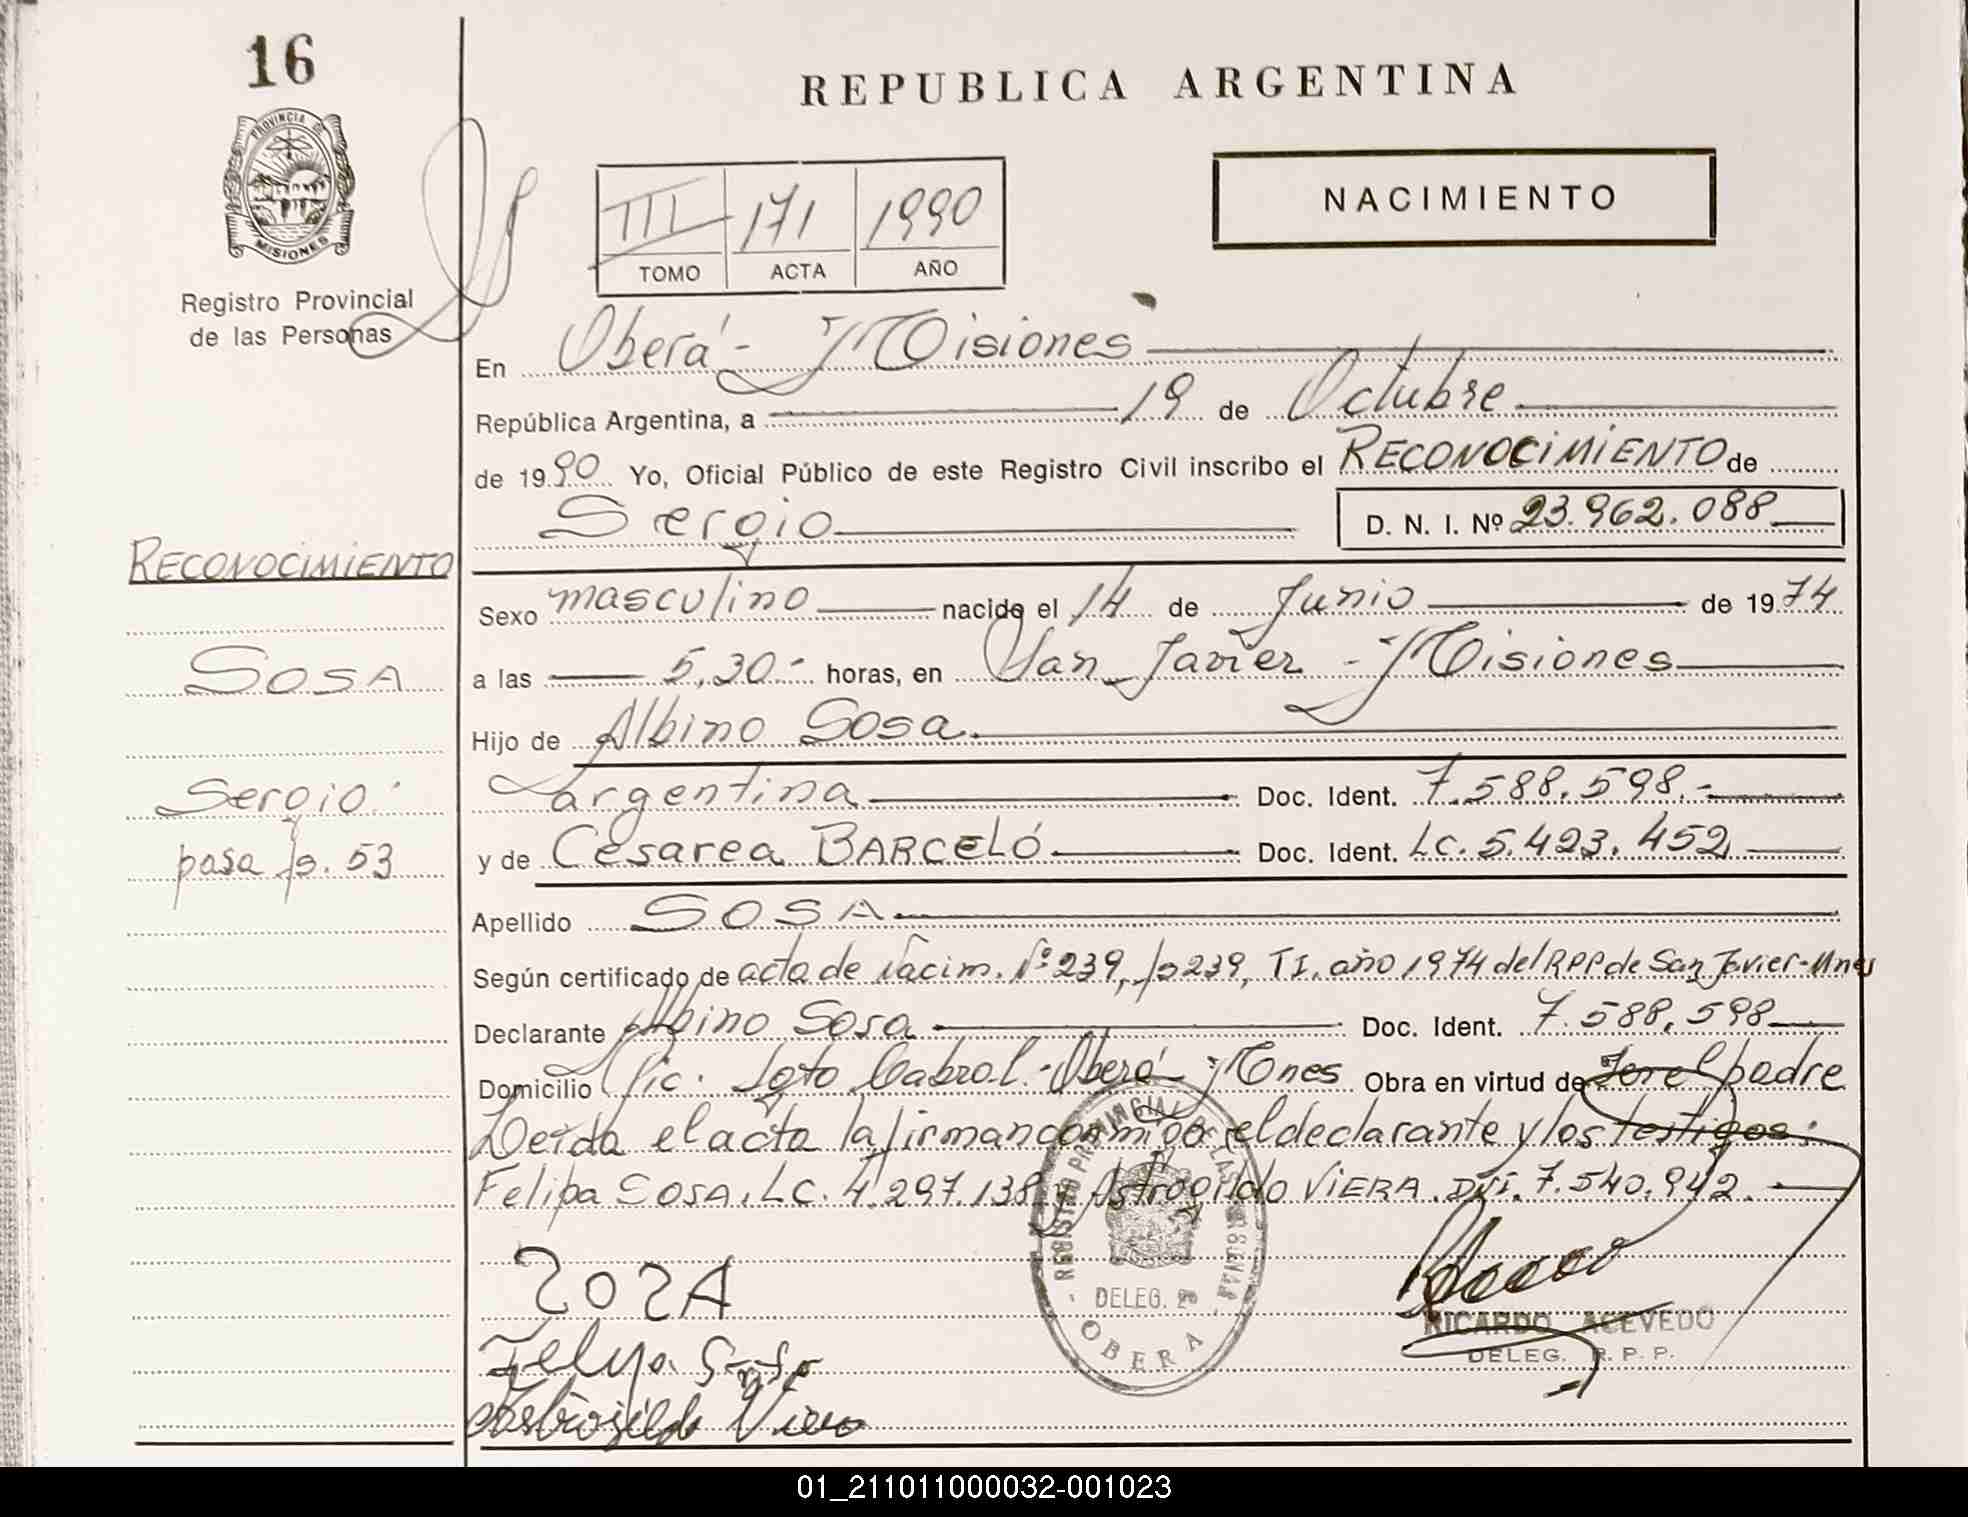 16
REPUBLICA ARGENTINA
PROVINCIA DE
MISIONES
Registro Provincial
de las Personas
III 171 1990
TOMO ACTA AÑO
NACIMIENTO
En Oberá - Misiones
República Argentina, a 19 de Octubre
de 1990 Yo, Oficial Público de este Registro Civil inscribo el RECONOCIMIENTO de
Sergio D. N. I. Nº 23.962.088
RECONOCIMIENTO
Sexo masculino nacido el 14 de Junio de 1974
a las 5,30- horas, en San Javier - Misiones
SOSA
Hijo de Albino Sosa.
argentina Doc. Ident. 7.588.598.-
Sergio.
y de Cesarea BARCELÓ Doc. Ident. LC. 5.423.452
pasa fo. 53
Apellido SOSA
Según certificado de acta de Nacim. Nº 239, fo 239, TI. año 1974 del RPP de San Javier-Mnes
Declarante Albino Sosa Doc. Ident. 7.588.598
Domicilio Pic. Sgto Cabral.-Oberá Mones Obra en virtud de Ser el padre
Leída el acta la firman conmigo el declarante y los testigos:
Felipa SOSA. LC. 4.297.138 y Astrogildo VIERA. DNI. 7.540.942.
SOSA
Felipa Sosa
Astrogildo Viera
REGISTRO PROVINCIAL DE LAS PERSONAS
DELEG. 2ª
OBERA
RICARDO ACEVEDO
DELEG. R.P.P.
01_211011000032-001023